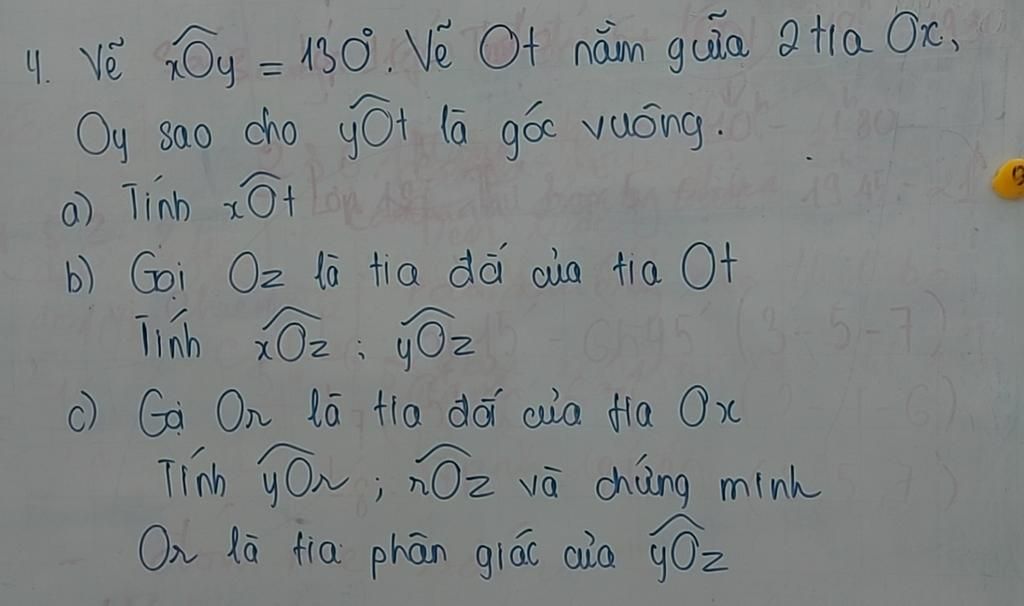 4. Vẽ xÔy = 130°. Vẽ Ot nằm giữa 2 tia Ox,
Oy sao cho yÔt là góc vuông.
a) Tính xÔt
b) Gọi Oz là tia đối của tia Ot
Tính xÔz ; yÔz
c) Gọi Or là tia đối của tia Ox
Tính yÔr ; rÔz và chứng minh
Or là tia phân giác của yÔz